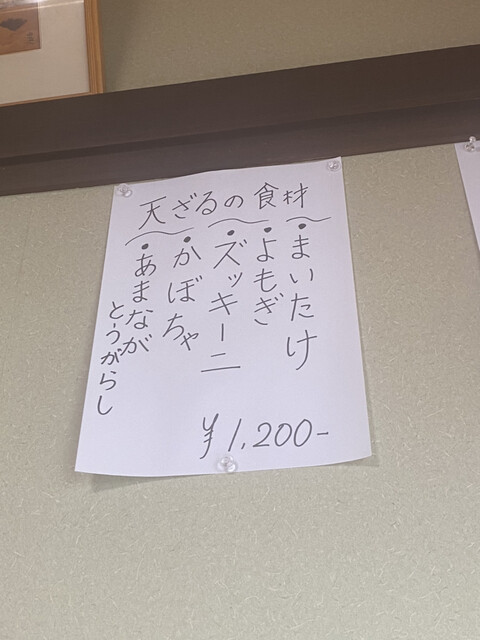 天ざるの食材
・まいたけ
・よもぎ
・ズッキーニ
・かぼちゃ
・あまなが
とうがらし
¥1,200-